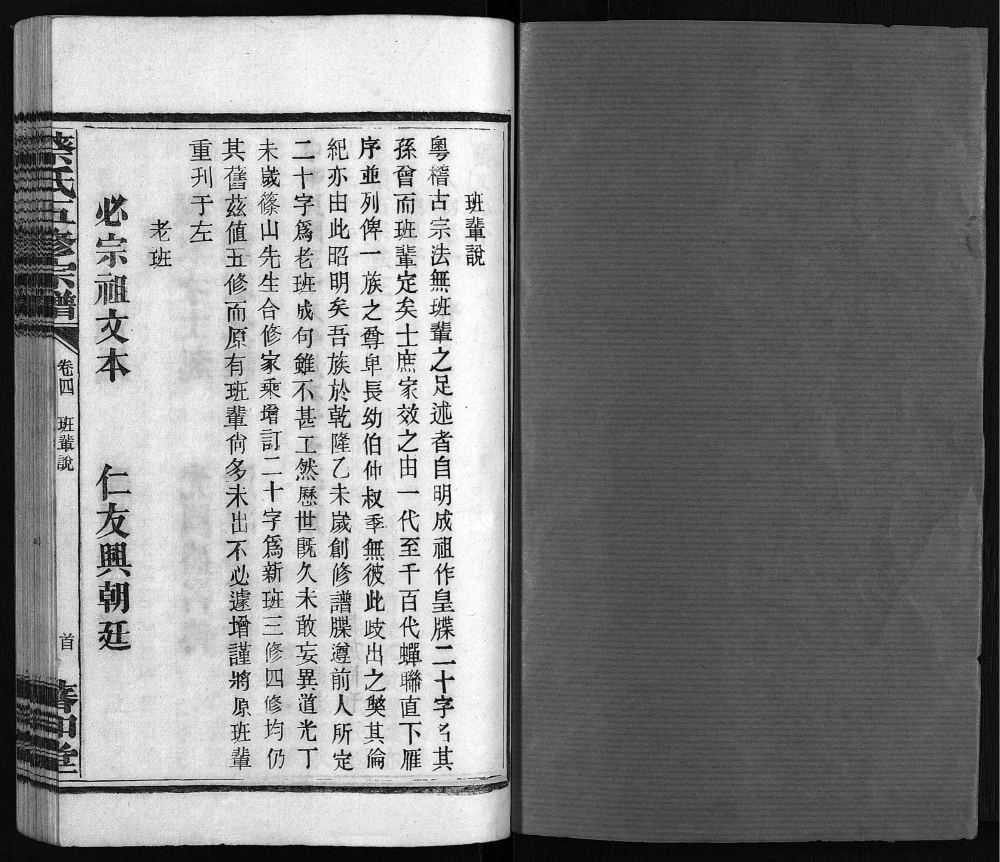 班輩說
粵稽古宗法無班輩之足述者自明成祖作皇牒二十字名其
孫曾而班輩定矣士庶家效之由一代至千百代蟬聯直下雁
序並列俾一族之尊卑長幼伯仲叔季無彼此歧出之獘其倫
紀亦由此昭明矣吾族於乾隆乙未嵗創修譜牒遵前人所定
二十字爲老班成句雖不甚工然歷世既久未敢妄異道光丁
未嵗篠山先生合修家乘增訂二十字爲新班三修四修均仍
其舊茲值五修而原有班輩尙多未出不必遽增謹將原班輩
重刊于左
老班
必宗祖文本 仁友興朝廷
氏五修宗譜 卷四 班輩說 首 堂